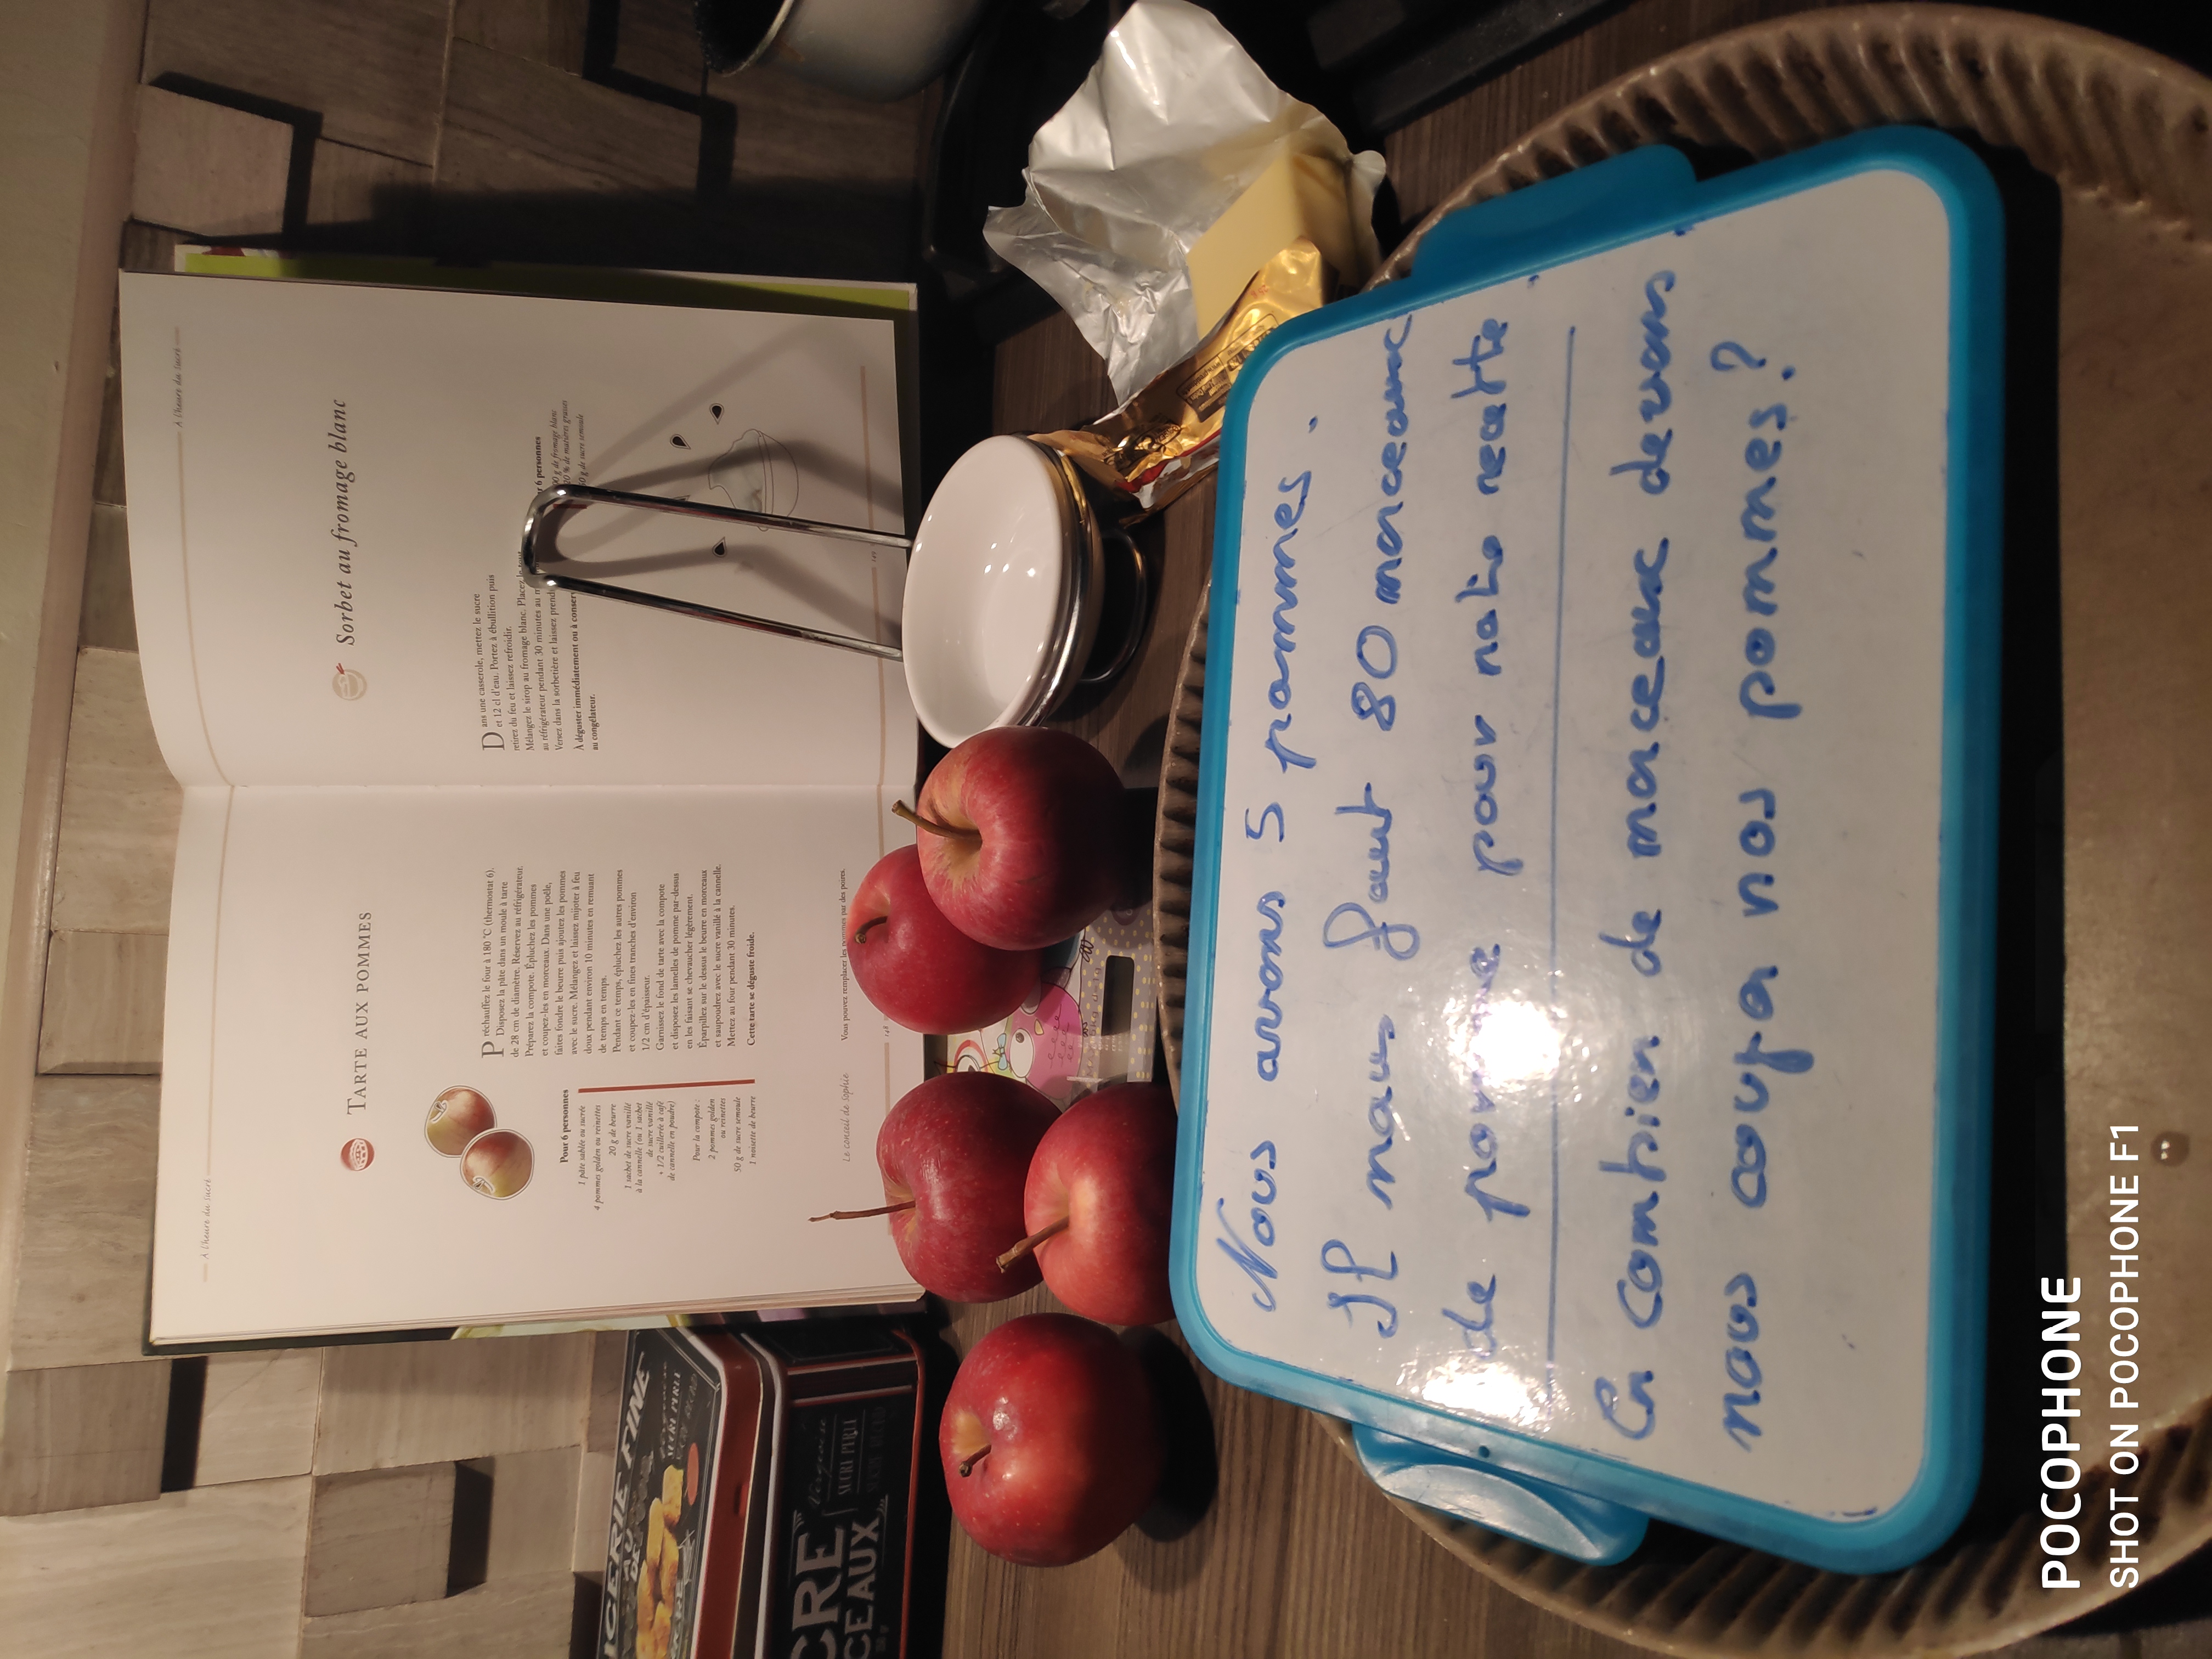 À l'heure du sucré
TARTE AUX POMMES
Pour 6 personnes
1 pâte sablée ou sucrée
4 pommes golden ou reinettes
20 g de beurre
1 sachet de sucre vanillé
à la cannelle (ou 1 sachet
de sucre vanillé
+ 1/2 cuillerée à café
de cannelle en poudre)
Pour la compote :
2 pommes golden
ou reinettes
50 g de sucre semoule
1 noisette de beurre
Préchauffez le four à 180 °C (thermostat 6).
Disposez la pâte dans un moule à tarte
de 28 cm de diamètre. Réservez au réfrigérateur.
Préparez la compote. Épluchez les pommes
et coupez-les en morceaux. Dans une poêle,
faites fondre le beurre puis ajoutez les pommes
avec le sucre. Mélangez et laissez mijoter à feu
doux pendant environ 10 minutes en remuant
de temps en temps.
Pendant ce temps, épluchez les autres pommes
et coupez-les en fines tranches d'environ
1/2 cm d'épaisseur.
Garnissez le fond de tarte avec la compote
et disposez les lamelles de pomme par-dessus
en les faisant se chevaucher légèrement.
Éparpillez sur le dessus le beurre en morceaux
et saupoudrez avec le sucre vanillé à la cannelle.
Mettez au four pendant 30 minutes.
Cette tarte se déguste froide.
Le conseil de Sophie
Vous pouvez remplacer les pommes par des poires.
À l'heure du sucré
Sorbet au fromage blanc
Dans une casserole, mettez le sucre
et 12 cl d'eau. Portez à ébullition puis
retirez du feu et laissez refroidir.
Mélangez le sirop au fromage blanc. Placez le tout
au réfrigérateur pendant 30 minutes au
Versez dans la sorbetière et laissez prendre
À déguster immédiatement ou à conserver
au congélateur.
6 personnes
g de fromage blanc
20 % de matières grasses
g de sucre semoule
AU
SUCRE PERLÉ
Nous avons 5 pommes.
Il nous faut 80 morceaux
de pomme pour notre recette.
En combien de morceaux devons
nous couper nos pommes?
POCOPHONE
SHOT ON POCOPHONE F1